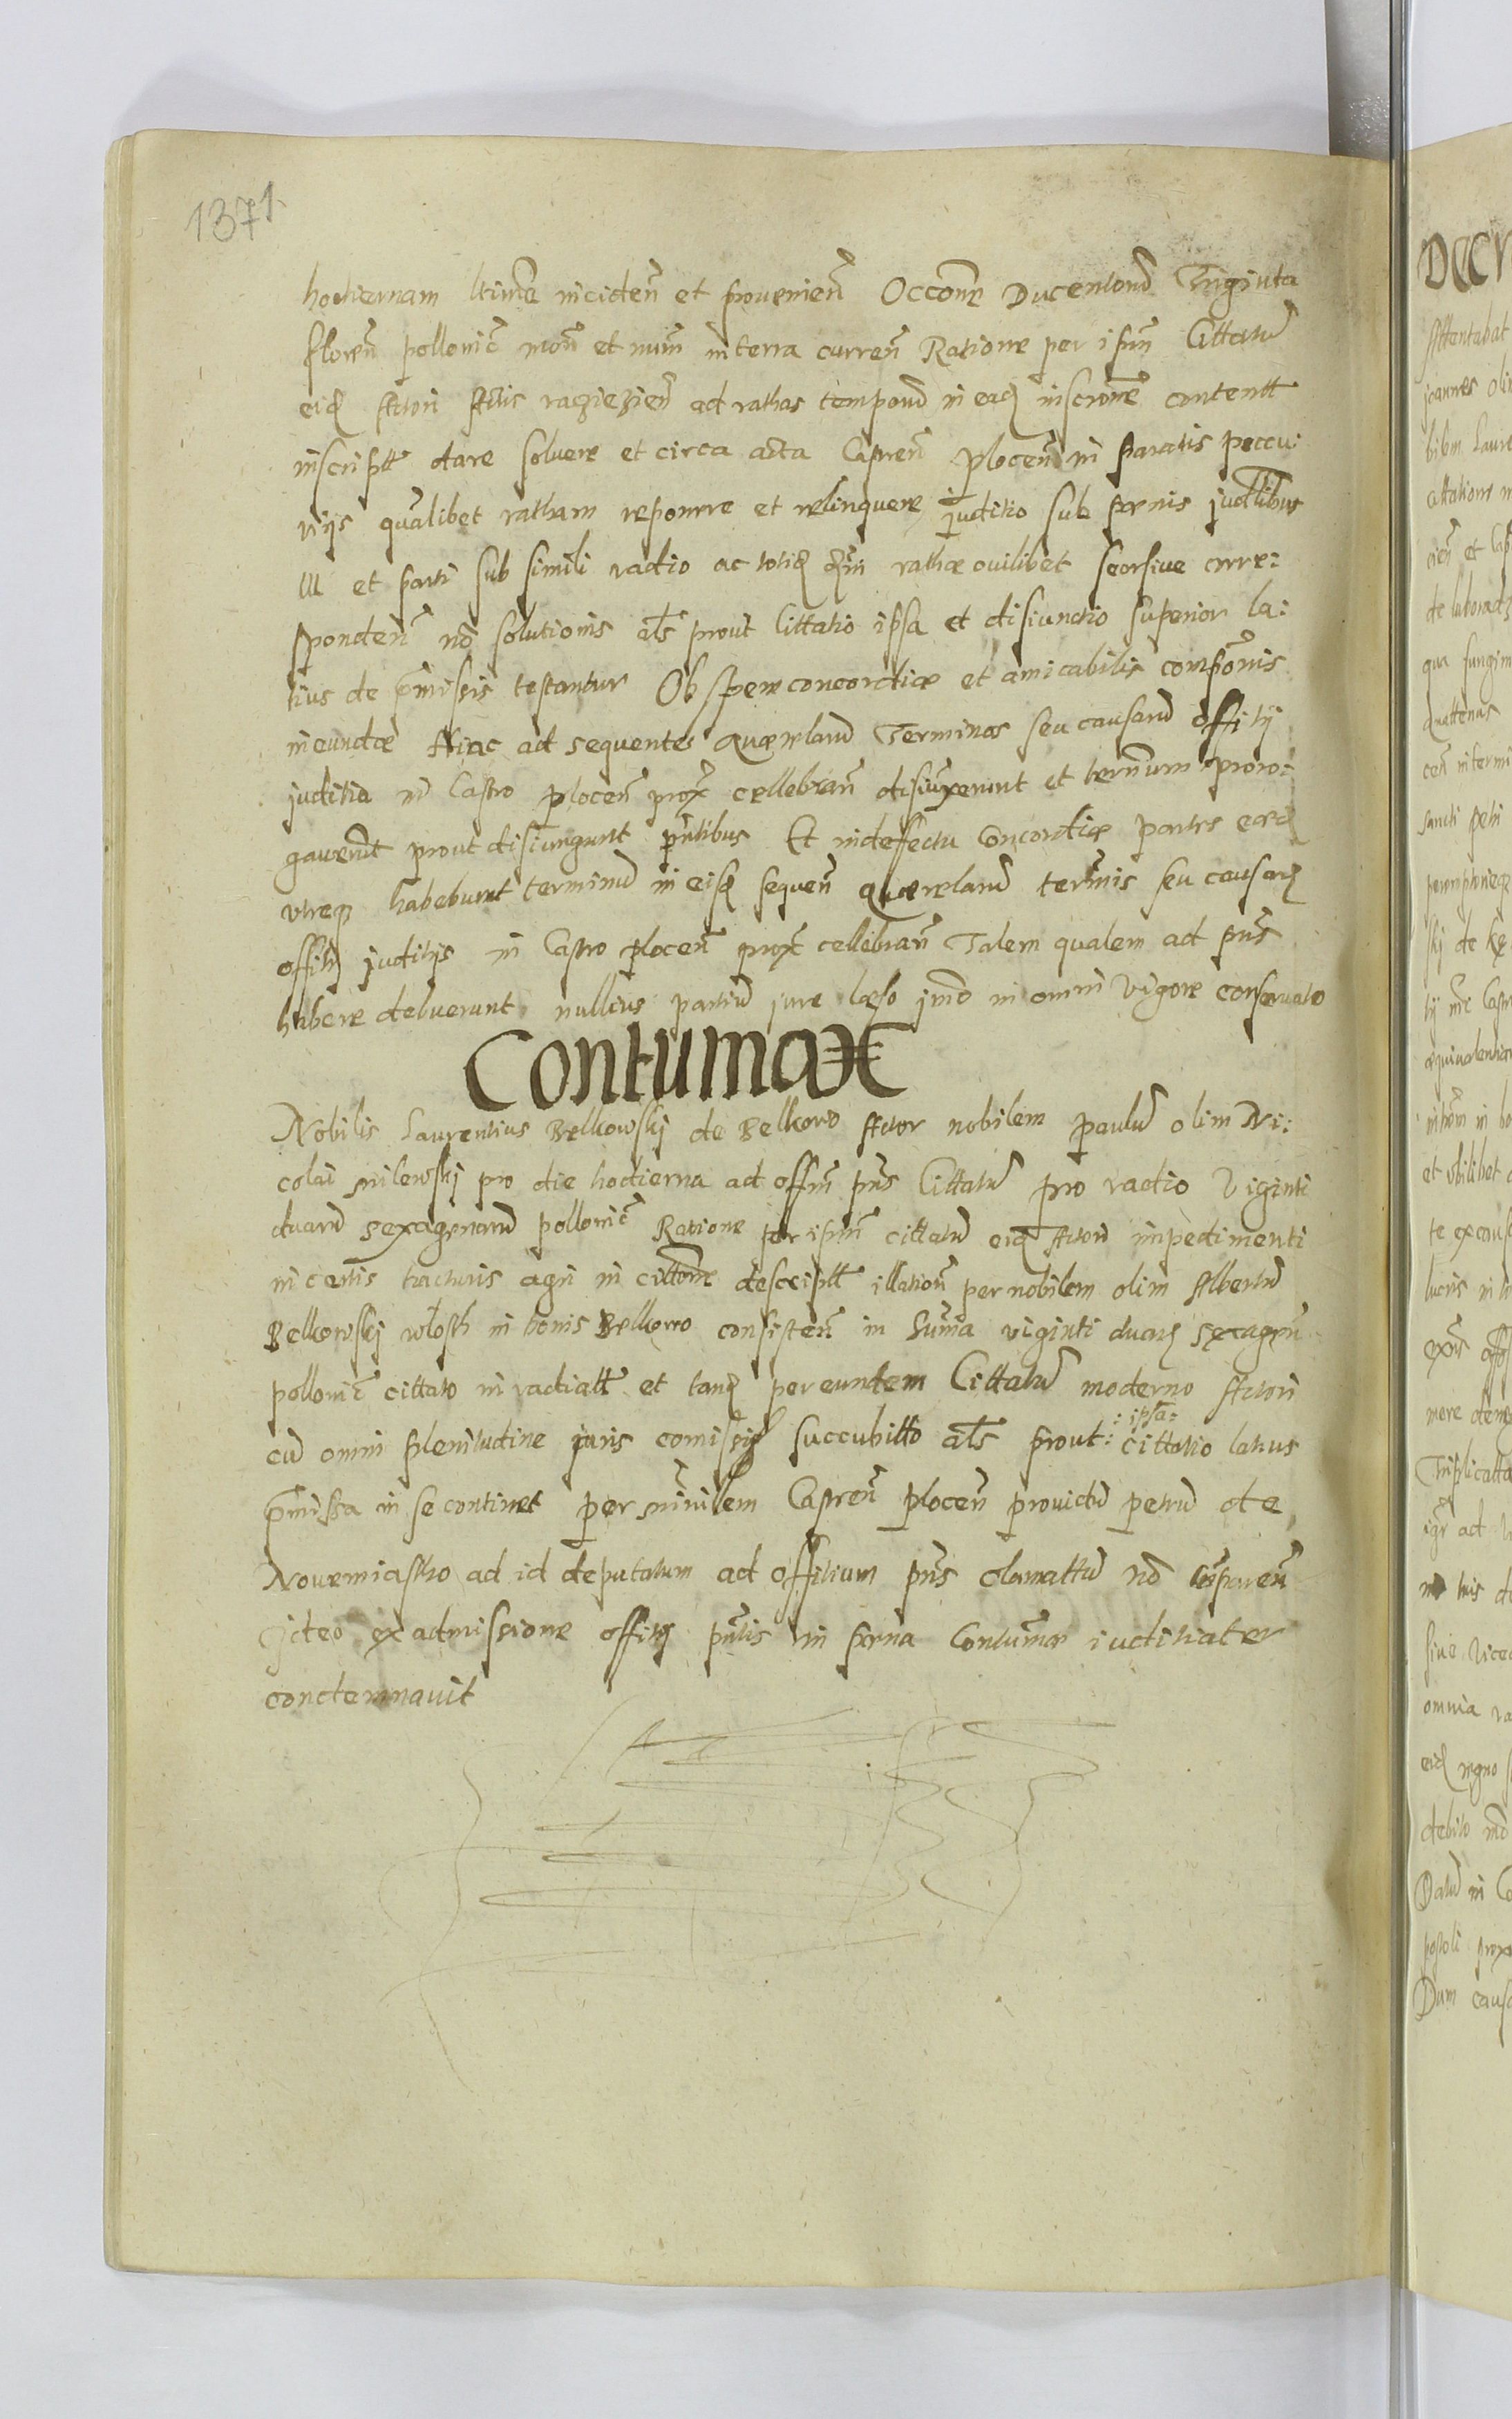 1371
hodiernam ltime inciden et prouenien Occone Ducentoru Triginta
floren pollonic mon et num in terra curren Ratione per ipsum Cittatu
eid Actori Actis ad rathas temporu in ead inscrone content
inscript dare soluere et circa acta Castren plocen in paratis peccu:
niis qualibet ratham reponere et relinquere juditio sub poenis judlibus
III et parti sub simili vadio ac totid rathae cuilibet seorsive corre:
sponden no solutionis als prout Cittatio ipsa et disiunctio superior la:
tius de pmissis testantur Ob spem concordiae et amicabilis compronis
ineundae Hinc ad sequentes quaerelaru Terminos seu causaru offitij
juditia in Castro plocen prox cellebran disiunxerunt et terminum proro:
gauerut prout disiungunt pntibus Et in deffectu Concordiae partes eaed
utreq habebunt terminu in eisd sequen quaerelaru terminis seu causar
offitij juditijs in Castro plocen prox cellebran Talem qualem ad pns
habere debuerunt nullius partiu jure laeso imo in omni vigore conseruato
Contumax
Nobilis Laurentius Belkowskj de Belkowo Actor nobilem paulu olim Ni:
colai milewskj pro die hodierna ad offm pns Cittatu pro vadio Viginti
duaru sexagenaru pollonic Ratione per ipsum cittatu eid Actori impedimenti
in certis tracturis agri in cittone descript illation per nobilem olim Albertu
Belkowskj wlosth in bonis Belkowo consisten in Summa viginti duar sexagen
pollonic cittato invadiatt et tanq per eundem Cittatu moderno Actori
cu omni plenitudine juris comissi succubitto als prout :ipsa: cittatio latius
pmissa in se continet per minilem Castren plocen prouidu petru de
Nouemiastho ad id deputatum ad offitium pns clamattu no comparen
ideo ex admissione offitij pntis in poena Contumae iuditialiter
condemnauit